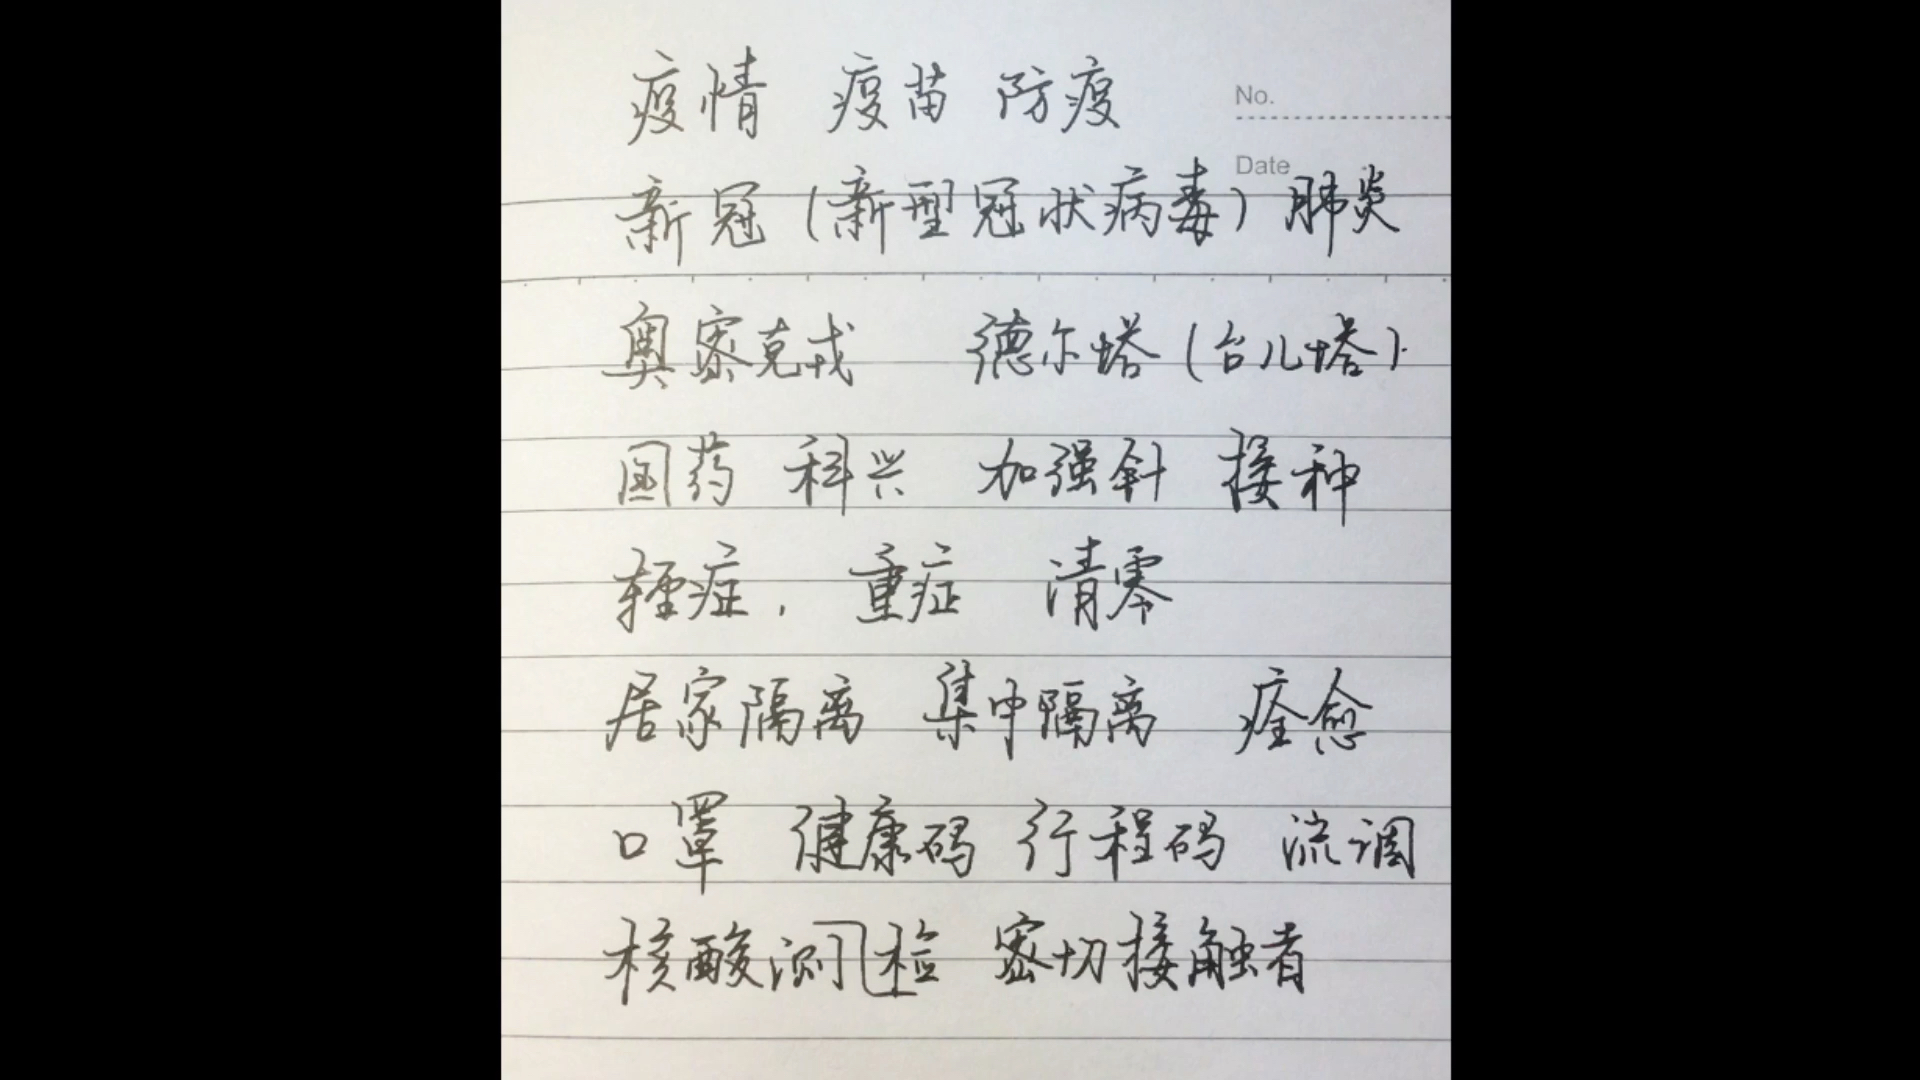 疫情 疫苗 防疫
No.
Date
新冠(新型冠状病毒)肺炎
奥密克戎 德尔塔(台儿塔)
国药 科兴 加强针 接种
轻症, 重症 清零
居家隔离 集中隔离 痊愈
口罩 健康码 行程码 流调
核酸测检 密切接触者